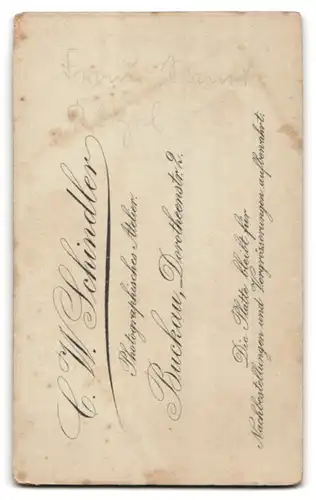 C. W. Schindler
Photographisches Atelier.
Buckau, Dorotheenstr. 2.
Die Platte bleibt für
Nachbestellungen und Vergrösserungen aufbewahrt.
Frau